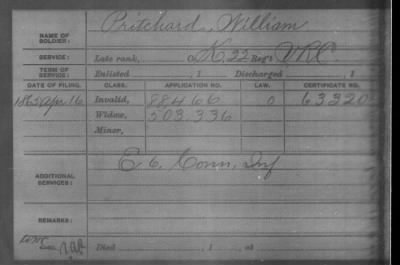 Pritchard, William
NAME OF SOLDIER:
SERVICE: Late rank, Co K, 22 Reg't VRC
TERM OF SERVICE: Enlisted , 1 Discharged , 1
DATE OF FILING. CLASS. APPLICATION NO. LAW. CERTIFICATE NO.
1865 Apr. 16 Invalid, 88466 0 63320
Widow, 503.336
Minor,
E 6, Conn, Inf
ADDITIONAL SERVICES:
REMARKS:
Died , 1 , at